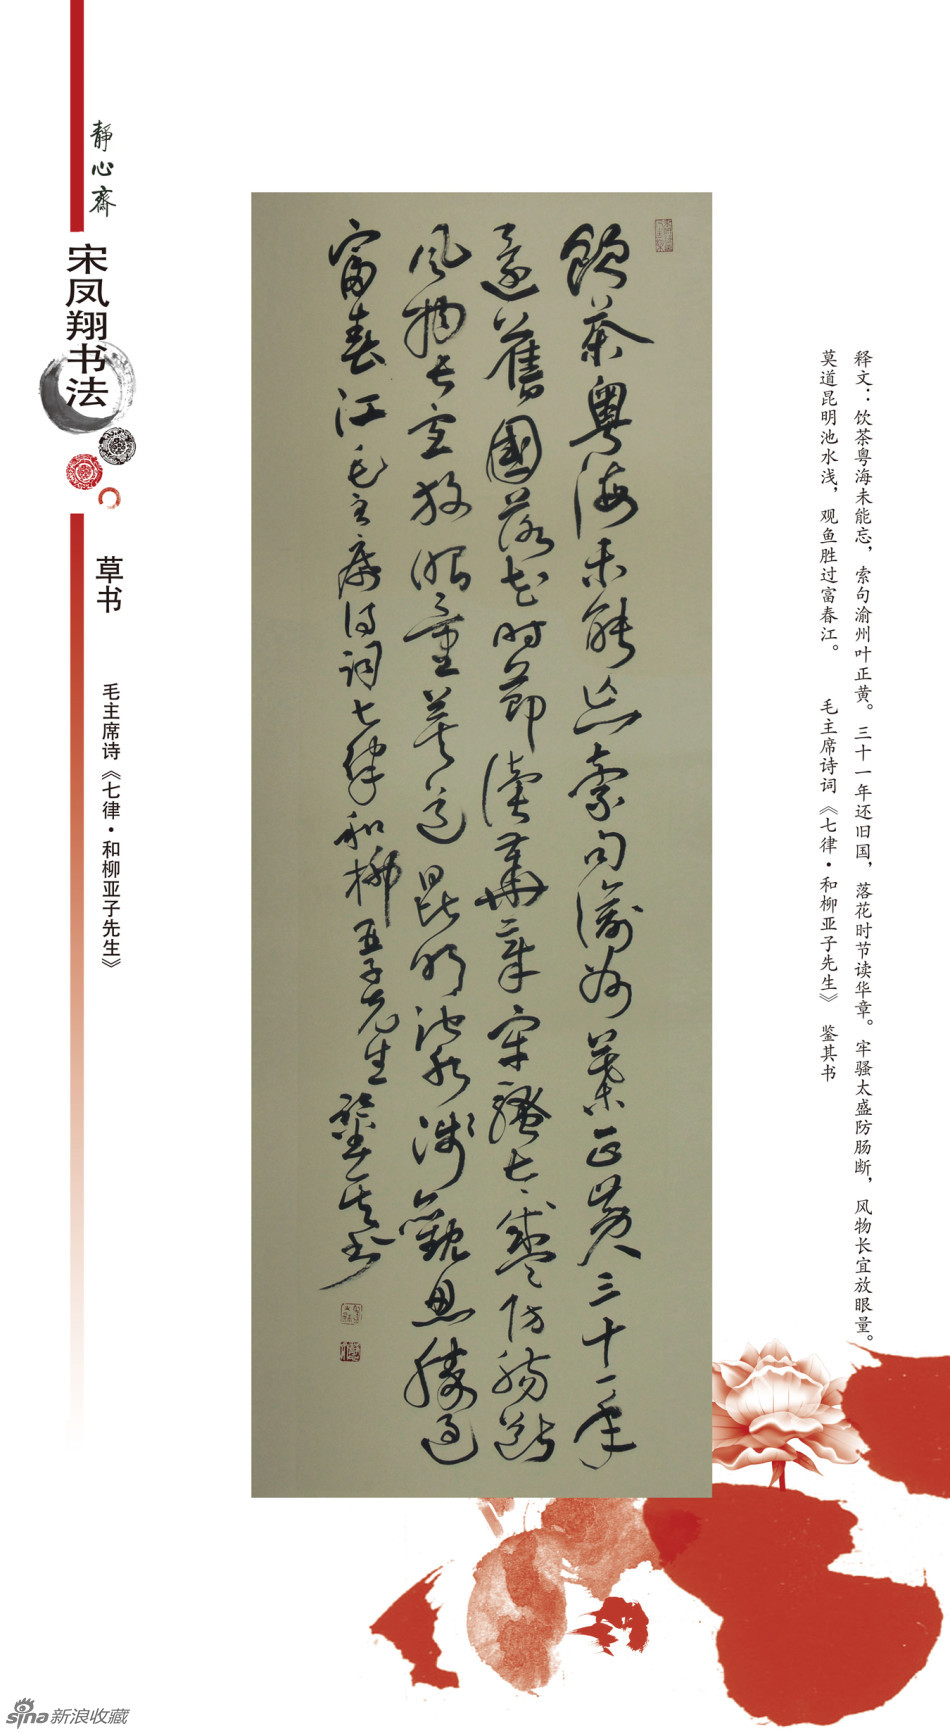 靜心齋
宋凤翔书法
草书
毛主席诗《七律·和柳亚子先生》
飲茶粵海未能忘索句渝州葉正黃三十一年
還舊國落花時節讀華章牢騷太盛防腸斷
風物長宜放眼量莫道昆明池水淺觀魚勝過
富春江毛主席詩詞七律和柳亞子先生鑒其書
释文：饮茶粤海未能忘，索句渝州叶正黄。三十一年还旧国，落花时节读华章。牢骚太盛防肠断，风物长宜放眼量。
莫道昆明池水浅，观鱼胜过富春江。 毛主席诗词《七律·和柳亚子先生》 鉴其书
sina新浪收藏